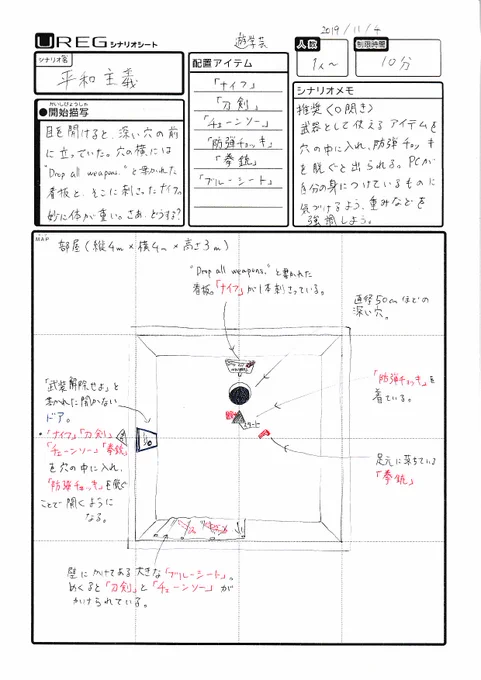 2019/11/4
UREG シナリオシート
遊学芸
人数
制限時間
1人〜
10分
シナリオ名
平和主義
配置アイテム
「ナイフ」
「刀剣」
「チェーンソー」
「防弾チョッキ」
「拳銃」
「ブルーシート」
かいしびょうしゃ
●開始描写
目を開けると、深い穴の前
に立っていた。穴の横には
"Drop all weapons."と書かれた
看板と、そこに刺さったナイフ。
妙に体が重い。さあ、どうする?
シナリオメモ
推奨〈○開き〉
武器として使えるアイテムを
穴の中に入れ、防弾チョッキ
を脱ぐと出られる。PCが
自分の身につけているものに
気づけるよう、重みなどを
強調しよう。
MAP
部屋(縦4m×横4m×高さ3m)
"Drop all weapons."と書かれた
看板。「ナイフ」が1本刺さっている。
直径50cmほどの
深い穴。
「防弾チョッキ」を
着ている。
スタート
足元に落ちている
「拳銃」
「武装解除せよ」と
書かれた開かない
ドア。
・「ナイフ」「刀剣」
「チェーンソー」「拳銃」
を穴の中に入れ、
「防弾チョッキ」を脱ぐ
ことで開くように
なる。
壁にかけてある大きな「ブルーシート」。
めくると「刀剣」と「チェーンソー」が
かけられている。